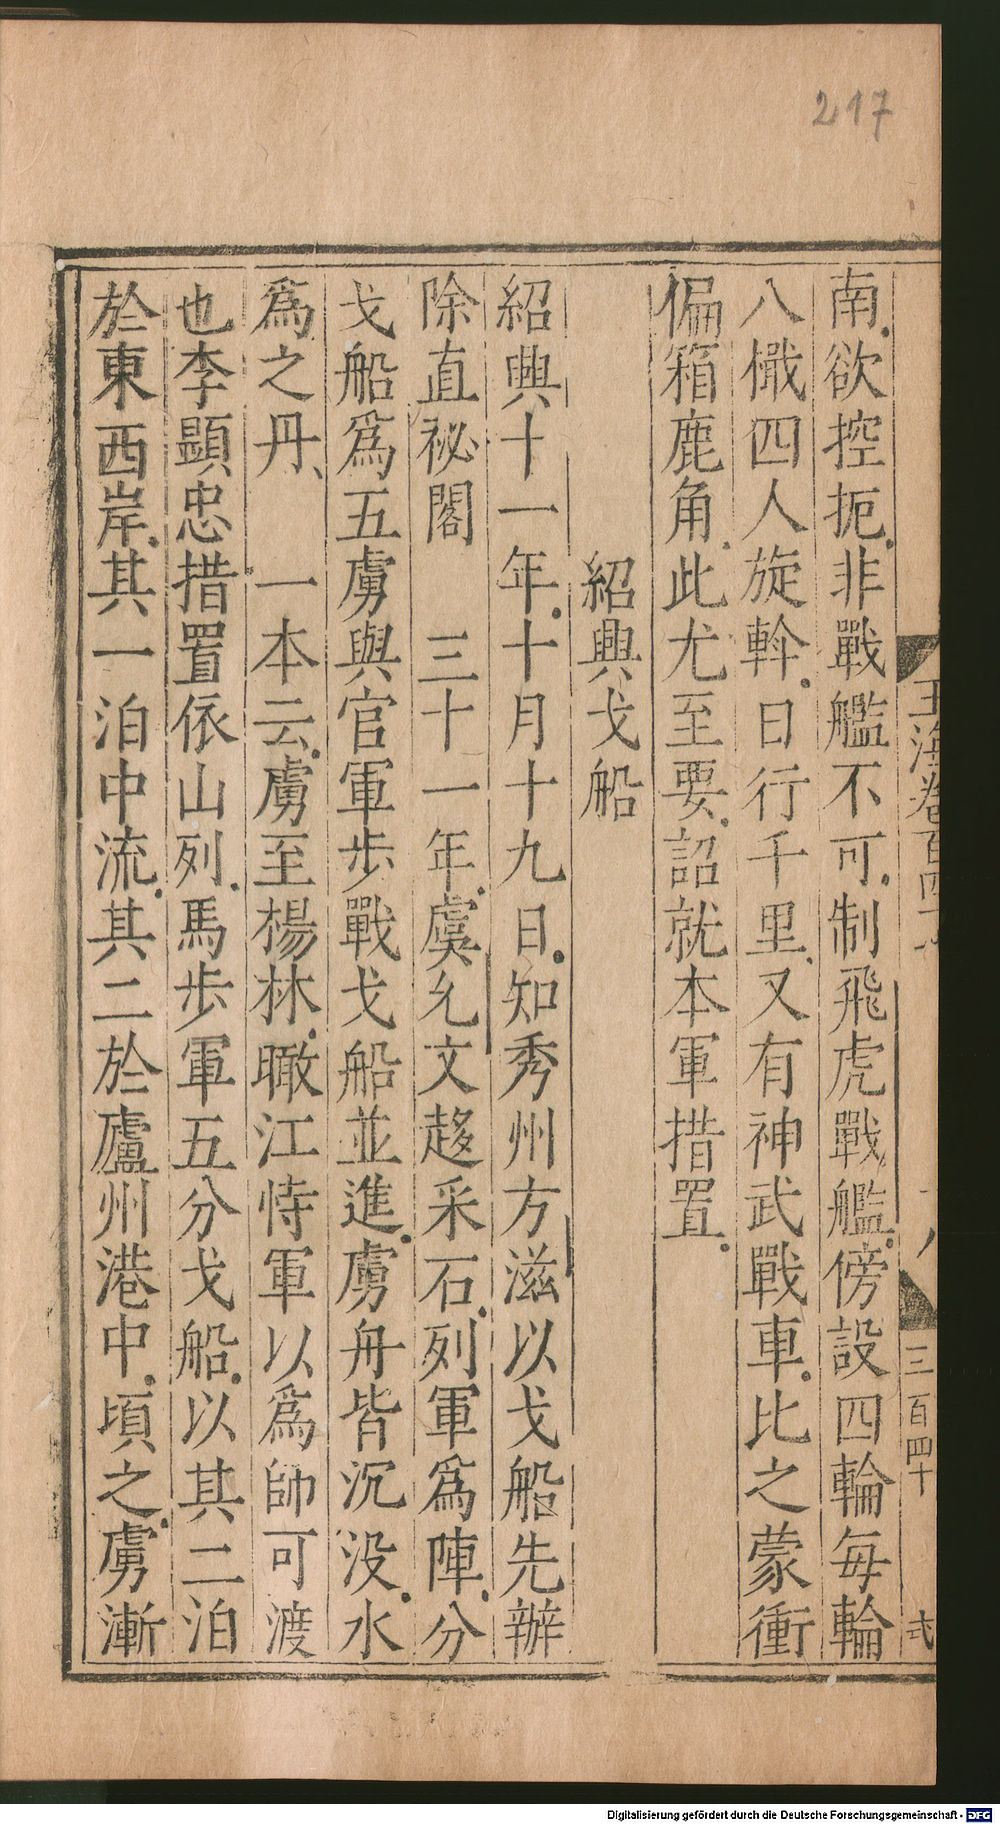 217
玉海卷百四十
三百四十
弍
南欲控扼非戰艦不可制飛虎戰艦傍設四輪每輪
八檝四人旋斡日行千里又有神武戰車比之蒙衝
偏箱鹿角此尤至要詔就本軍措置
紹興戈船
紹興十一年十月十九日知秀州方滋以戈船先辦
除直祕閣 三十一年虞允文趍采石列軍爲陣分
戈船爲五虜與官軍步戰戈船並進虜舟皆沉没水
爲之丹 一本云虜至楊林瞰江恃軍以爲帥可渡
也李顯忠措置依山列馬步軍五分戈船以其二泊
於東西岸其一泊中流其二於廬州港中頃之虜漸
Digitalisierung gefördert durch die Deutsche Forschungsgemeinschaft - DFG